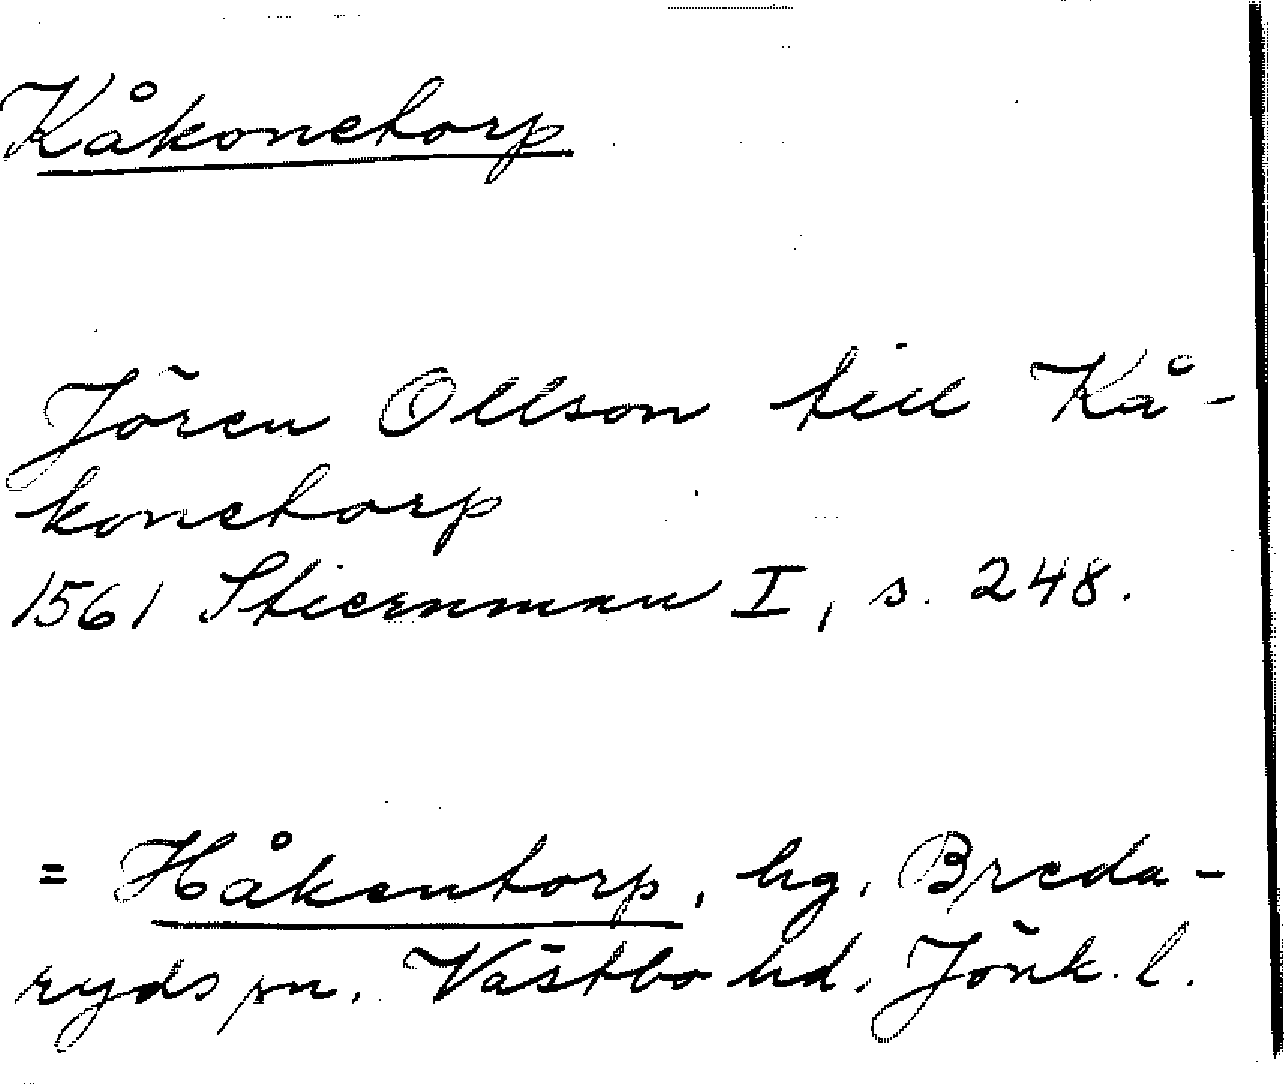 Kåkonetorp
Jören Ollson till Kå-
konetorp
1561 Stiernman I, s. 248.
= Håkentorp, hg. Breda-
ryds sn. Västbo hd. Jönk. l.